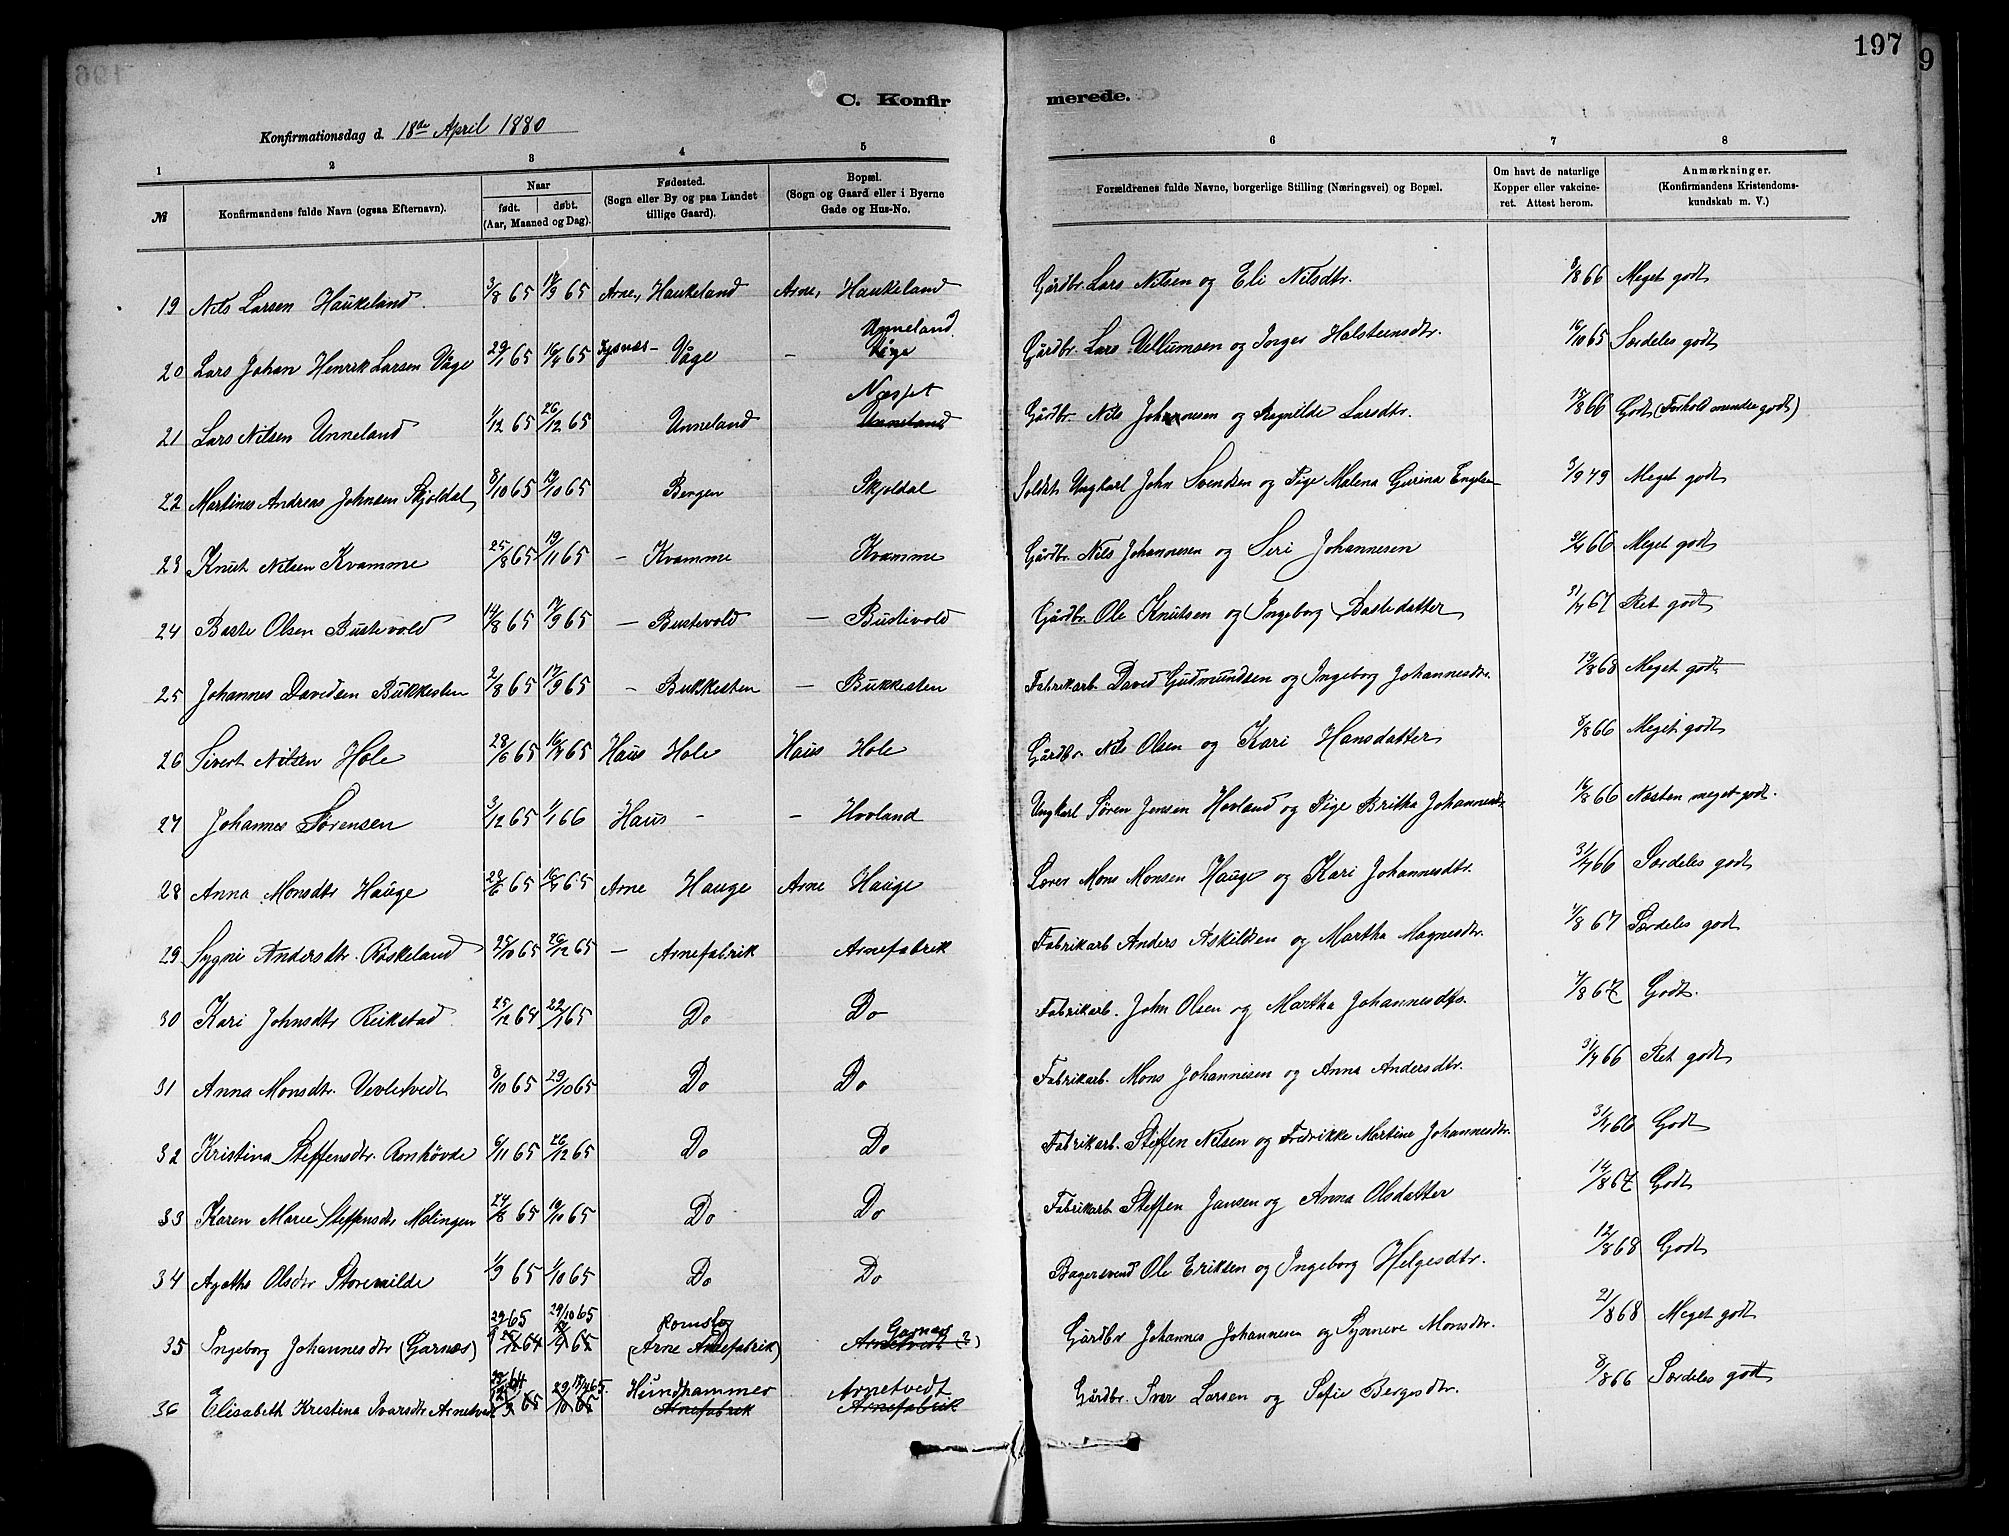 197
9
C. Konfirmerede.
Konfirmationsdag d. 18de April 1880
1 2 3 4 5 6 7 8
№ Konfirmandens fulde Navn (ogsaa Efternavn). Naar født. døbt. (Aar, Maaned og Dag). Fødested. (Sogn eller By og paa Landet tillige Gaard). Bopæl. (Sogn og Gaard eller i Byerne Gade og Hus-No. Forældrenes fulde Navne, borgerlige Stilling (Næringsvei) og Bopæl. Om havt de naturlige Kopper eller vaccineret. Attest herom. Anmærkninger. (Konfirmandens Kristendomskundskab m. V.)
19 Nils Larsen Haukeland 3/8 65 65 Arne, Haukeland Arne, Haukeland Gårdbr. Lars Nilsen og Eli Nilsdtr. 3/8 66 Meget godt
Unneland
20 Lars Johan Henrik Larsen Våge 29/1 65 16/4 65 Våge – Våge Gårdbr. Lars Villumsen og Inger Halsteensdtr. 16/10 65 Særdeles godt
Nesset
21 Lars Nilsen Unneland 1/12 65 26/12 65 Unneland Unneland Gårdbr. Nils Johannesen og Ragnilde Larsdtr. 15/8 66 Godt (Forhold mindre godt)
22 Martines Andreas Johnsen Skjoldal 8/10 65 65 Bergen Skjoldal Soldat Ungkarl John Svendsen og Pige Malena Gurina Engelsen 3/9 79 Meget godt
23 Knut Nilsen Kvamme 25/8 65 19/11 65 – Kvamme Kvamme Gårdbr. Nils Johannesen og Siri Johannesen 66 Meget godt
24 Baste Olsen Bustevold 14/8 65 17/9 65 – Bustevold – Bustevold Gårdbr. Ole Knutsen og Ingeborg Bastedatter 31/7 67 Ret godt
25 Johannes Davidsen Bukkesten 2/8 65 17/9 65 – Bukkesten – Bukkesten Fabrikarb. David Gudmundsen og Ingeborg Johannesdtr. 19/8 68 Meget godt
26 Sivert Nilsen Hole 28/6 65 16/7 65 Haus Hole Haus Hole Gårdbr Nils Olsen og Kari Hansdatter 8/8 66 Meget godt
27 Johannes Sørensen 3/12 65 1/1 66 Haus – – Hovland Ungkarl Søren Jensen Hovland og Pige Britha Johannesdtr 16/8 66 Næsten meget godt.
28 Anna Monsdtr Hauge 28/6 65 16/7 65 Arne Hauge Arne Hauge Lærer Mons Monsen Hauge og Kari Johannesdtr. 31/7 66 Særdeles godt
29 Sygni Andersdtr. Røskeland 25/10 65 26/12 65 – Arnefabrik Arnefabrik Fabrikarb Anders Askildsen og Martha Magnesdtr. 7/8 67 Særdeles godt
30 Kari Johnsdtr Reikstad 25/12 64 22/1 65 Do Do Fabrikarb. John Olsen og Martha Johannesdtr. 7/8 67 Godt.
31 Anna Monsdtr. Vevletvedt 8/10 65 29/10 65 Do Do Fabrikarb. Mons Johannesen og Anna Andersdtr. 31/7 66 Ret godt
32 Kristina Steffensdtr. Ronhövde 6/11 65 26/12 65 Do Do Fabrikarb. Steffen Nilsen og Fredrikke Martine Johannesdtr. 31/7 66 Godt
33 Karen Marie Steffensdtr Molingen 24/8 65 65 Do Do Fabrikarb Steffen Jansen og Anna Olsdatter 14/8 67 Godt
34 Agatha Olsdtr Storemilde 1/9 65 1/10 65 Do Do Bagersvend Ole Eriksen og Ingeborg Helgesdtr. 12/8 68 Godt
29/9 65 29/10 65 Romslo Garnæs
35 Ingeborg Johannesdtr (Garnæs) 64 65 (Arne Arnefabrik) Arnetvedt (?) Gårdbr Johannes Johannesen og Synneve Monsdtr. 21/8 68 Meget godt
64 65. Hundhammer Arnetvedt
36 Elisabeth Kristina Ivarsdtr Arnetvedt 65 29/10 65 Arnefabrik Arnefabrik Gårdbr. Ivar Larsen og Sofie Bergesdtr. 8/8 66 Særdeles godt